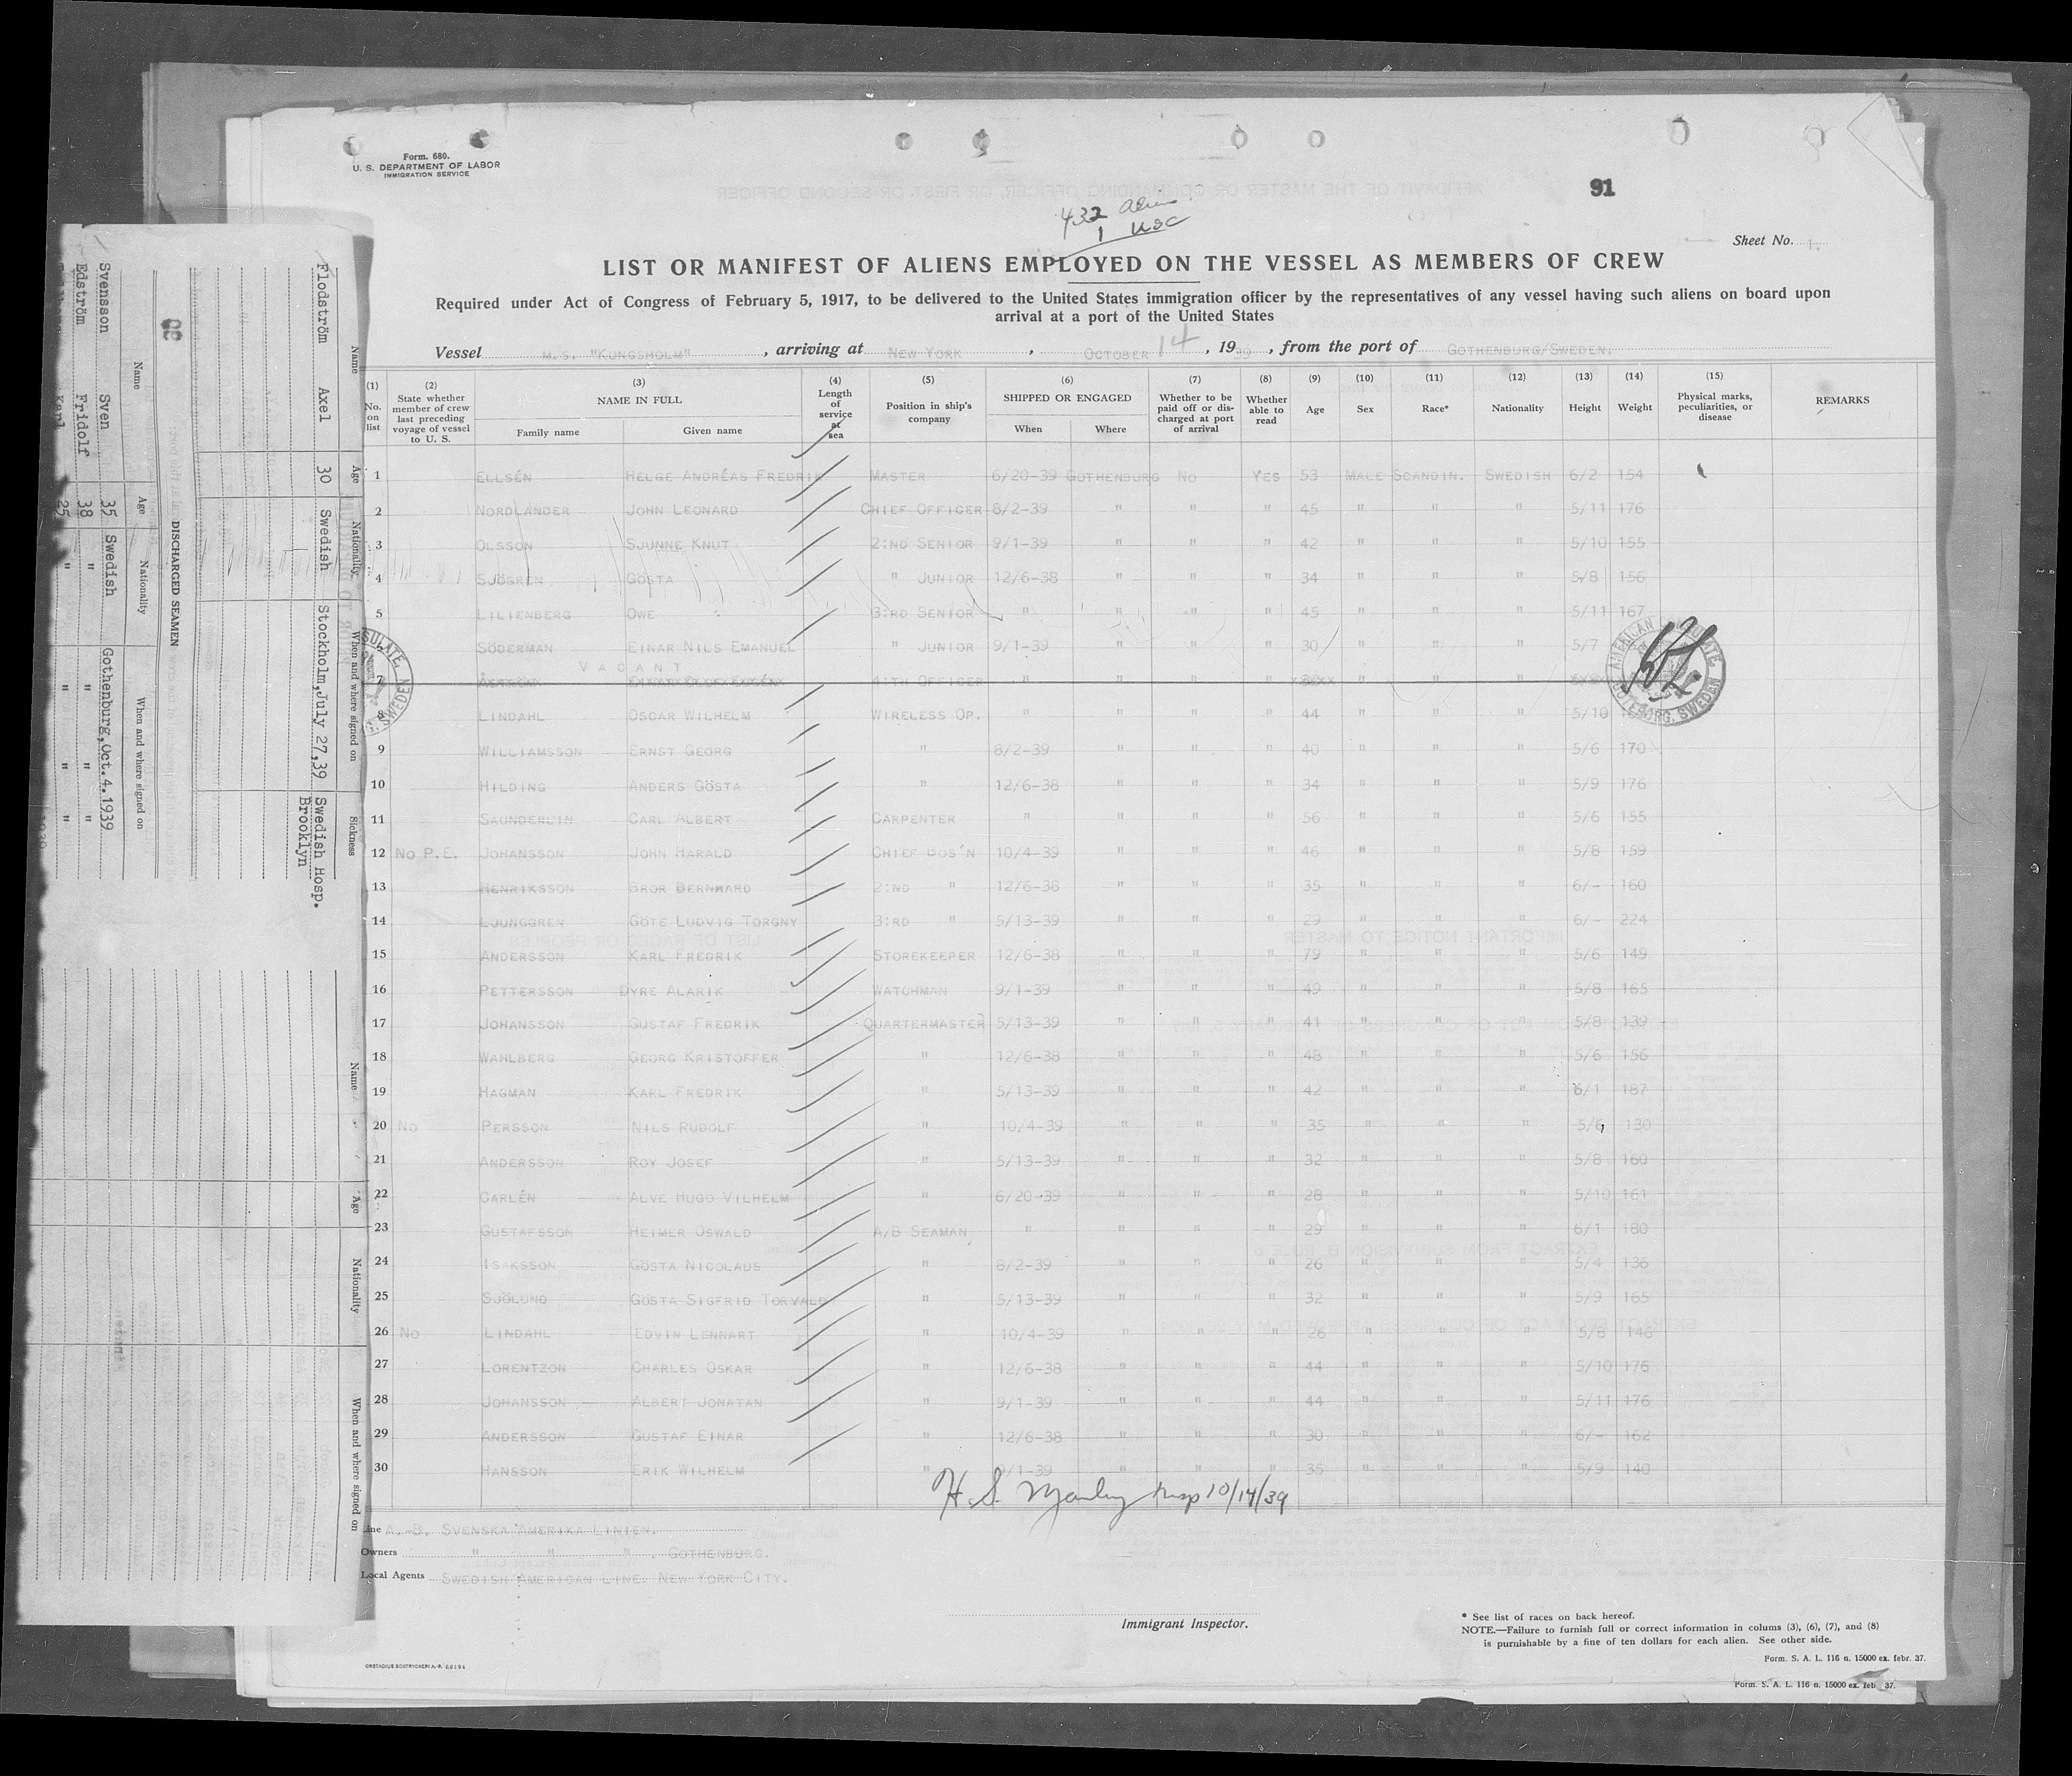 Form. 680.
U. S. DEPARTMENT OF LABOR
IMMIGRATION SERVICE
91
432 Aliens
1 USC
Sheet No. 1.
LIST OR MANIFEST OF ALIENS EMPLOYED ON THE VESSEL AS MEMBERS OF CREW
Required under Act of Congress of February 5, 1917, to be delivered to the United States immigration officer by the representatives of any vessel having such aliens on board upon
arrival at a port of the United States
Vessel M.S. "KUNGSHOLM", arriving at NEW YORK, OCTOBER 14, 1939, from the port of GOTHENBURG/SWEDEN.
(1) No. on list (2) State whether member of crew last preceding voyage of vessel to U. S. (3) NAME IN FULL Family name Given name (4) Length of service at sea (5) Position in ship's company (6) SHIPPED OR ENGAGED When Where (7) Whether to be paid off or discharged at port of arrival (8) Whether able to read (9) Age (10) Sex (11) Race* (12) Nationality (13) Height (14) Weight (15) Physical marks, peculiarities, or disease REMARKS
1 ELLSÉN HELGE ANDRÉAS FREDRIK MASTER 6/20-39 GOTHENBURG NO YES 53 MALE SCANDIN. SWEDISH 6/2 154
2 NORDLANDER JOHN LEONARD CHIEF OFFICER 8/2-39 " " " 45 " " " 5/11 176
3 OLSSON SJUNNE KNUT 2:ND SENIOR 9/1-39 " " " 42 " " " 5/10 155
4 SJÖGREN GÖSTA " JUNIOR 12/6-38 " " " 34 " " " 5/8 156
5 LILIENBERG OWE 3:RD SENIOR " " " " 45 " " " 5/11 167
6 SÖDERMAN EINAR NILS EMANUEL " JUNIOR 9/1-39 " " " 30 " " " 5/7
VACANT
7 4:TH OFFICER " " " " " " "
8 LINDAHL OSCAR WILHELM WIRELESS OP. " " " " 44 " " " 5/10
9 WILLIAMSSON ERNST GEORG " 8/2-39 " " " 40 " " " 5/6 170
10 HILDING ANDERS GÖSTA " 12/6-38 " " " 34 " " " 5/9 176
11 SAUNDERLIN CARL ALBERT CARPENTER " " " " 56 " " " 5/6 155
12 NO P.E. JOHANSSON JOHN HARALD CHIEF BOS'N 10/4-39 " " " 46 " " " 5/8 159
13 HENRIKSSON BROR BERNHARD 2:ND " 12/6-38 " " " 35 " " " 6/- 160
14 LJUNGGREN GÖTE LUDVIG TORGNY 3:RD " 5/13-39 " " " 29 " " " 6/- 224
15 ANDERSSON KARL FREDRIK STOREKEEPER 12/6-38 " " " 79 " " " 5/6 149
16 PETTERSSON DYRE ALARIK WATCHMAN 9/1-39 " " " 49 " " " 5/8 165
17 JOHANSSON GUSTAF FREDRIK QUARTERMASTER 5/13-39 " " " 41 " " " 5/8 139
18 WAHLBERG GEORG KRISTOFFER " 12/6-38 " " " 48 " " " 5/6 156
19 HAGMAN KARL FREDRIK " 5/13-39 " " " 42 " " " 6/1 187
20 NO PERSSON NILS RUDOLF " 10/4-39 " " " 35 " " " 5/6 130
21 ANDERSSON ROY JOSEF " 5/13-39 " " " 32 " " " 5/8 160
22 CARLÉN ALVE HUGO VILHELM " 6/20-39 " " " 28 " " " 5/10 161
23 GUSTAFSSON HEIMER OSWALD A/B SEAMAN " " " " 29 " " " 6/1 180
24 ISAKSSON GÖSTA NICOLAUS " 8/2-39 " " " 26 " " " 5/4 136
25 SJÖLUND GÖSTA SIGFRID TORVALD " 5/13-39 " " " 32 " " " 5/9 165
26 NO LINDAHL EDVIN LENNART " 10/4-39 " " " 26 " " " 5/8 146
27 LORENTZON CHARLES OSKAR " 12/6-38 " " " 44 " " " 5/10 176
28 JOHANSSON ALBERT JONATAN " 9/1-39 " " " 44 " " " 5/11 176
29 ANDERSSON GUSTAF EINAR " 12/6-38 " " " 30 " " " 6/- 162
30 HANSSON ERIK WILHELM " 9/1-39 " " " 35 " " " 5/9 140
H. S. Manley Insp 10/14/39
Line A. B. SVENSKA AMERIKA LINIEN.
Owners " " ", GOTHENBURG.
Local Agents SWEDISH AMERICAN LINE. NEW YORK CITY.
Immigrant Inspector.
* See list of races on back hereof.
NOTE.—Failure to furnish full or correct information in colums (3), (6), (7), and (8)
is punishable by a fine of ten dollars for each alien. See other side.
Form. S. A. L. 116 n. 15000 ex. febr. 37.
Form. S. A. L. 116 n. 15000 ex. feb 37.
AMERICAN CONSULATE
GÖTEBORG, SWEDEN
Name Age Nationality When and where signed on Sickness
Flodström Axel 30 Swedish Stockholm, July 27,39 Swedish Hosp.
Brooklyn
DISCHARGED SEAMEN
Name Age Nationality When and where signed on
Svensson Sven 35 Swedish Gothenburg, Oct.4.1939
Edström Fridolf 38 " " "
Karl 25 " " "
Name Age Nationality When and where signed on